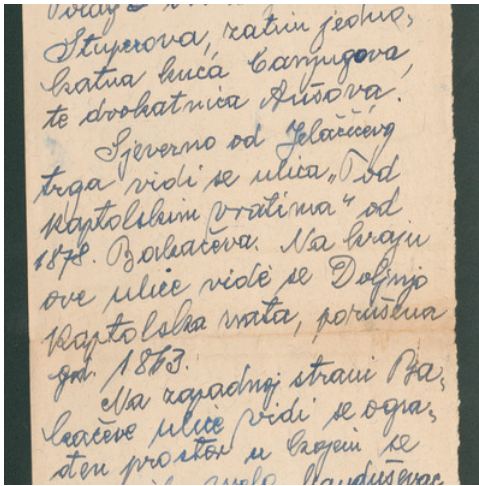 Stuperova, zatim jedno-
katna kuća Canjugova,
te dvokatnica Aušova.
Sjeverno od Jelačićevg
trga vidi se ulica „Pod
kaptolskim vratima" od
1878. Bakačeva. Na kraju
ove ulice vide se Doljnjo
Kaptolska vrata, porušena
god. 1863.
Na zapadnoj strani Ba-
kačeve ulice vidi se ogra-
đen prostor u kojem se